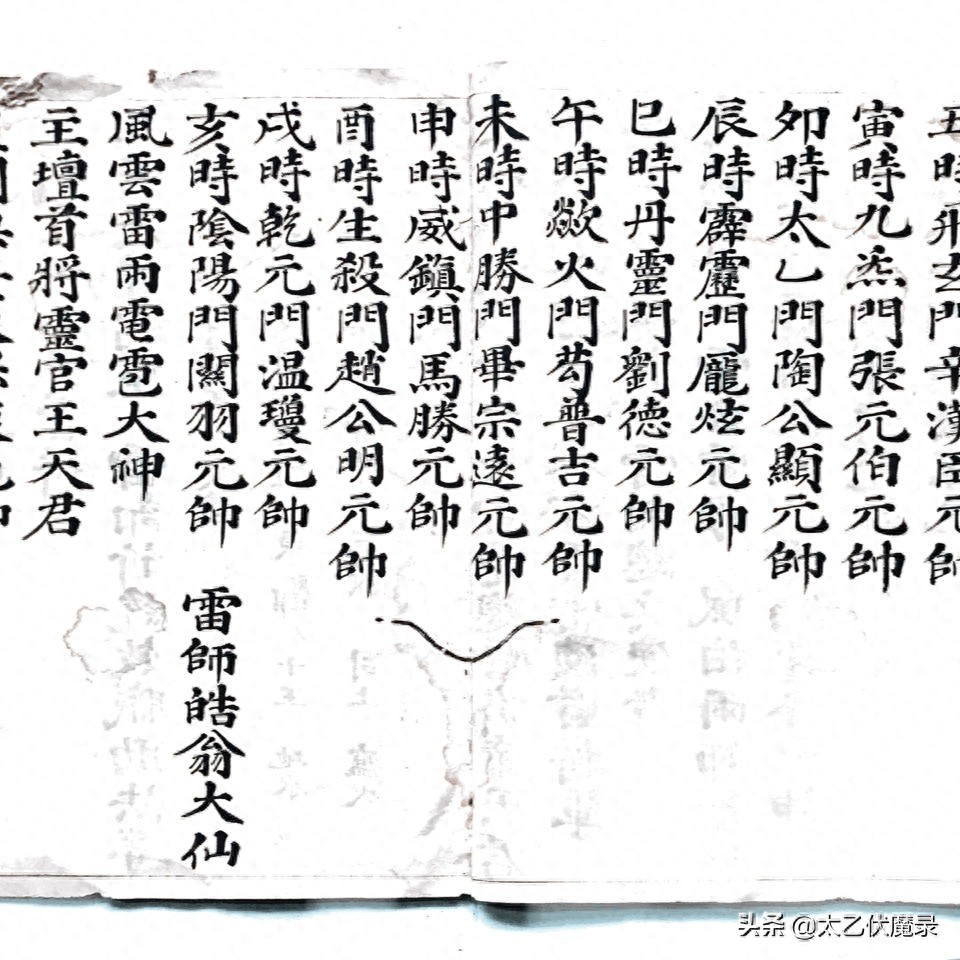 丑時飛玄門辛漢臣元帥
寅時九炁門張元伯元帥
夘時太乙門陶公顯元帥
辰時霹靂門龐炫元帥
巳時丹靈門劉德元帥
午時歘火門苟普吉元帥
未時中勝門畢宗遠元帥
申時威鎮門馬勝元帥
酉時生殺門趙公明元帥
戌時乾元門温瓊元帥
亥時陰陽門關羽元帥
雷師皓翁大仙
風雲雷雨電雹大神
主壇首將靈官王天君
头条 @太乙伏魔录